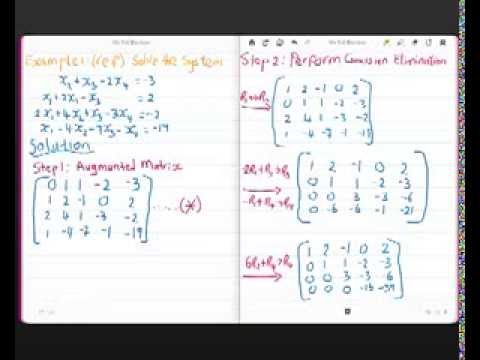 Example 1: (ref) Solve the System
x₂+x₃-2x₄=-3
x₁+2x₂-x₃ =2
2x₁+4x₂+x₃-3x₄=-2
x₁-4x₂-7x₃-x₄=-19
Solution
Step 1: Augmented Matrix
0 1 1 -2 -3
1 2 -1 0 2
2 4 1 -3 -2
1 -4 -7 -1 -19
.....(*)
Step 2: Perform Gaussian Elimination
1 2 -1 0 2
0 1 1 -2 -3
2 4 1 -3 -2
1 -4 -7 -1 -19
-2R₁+R₃→R₃
-R₁+R₄→R₄
1 2 -1 0 2
0 1 1 -2 -3
0 0 3 -3 -6
0 -6 -6 -1 -21
6R₂+R₄→R₄
1 2 -1 0 2
0 1 1 -2 -3
0 0 3 -3 -6
0 0 0 -13 -39